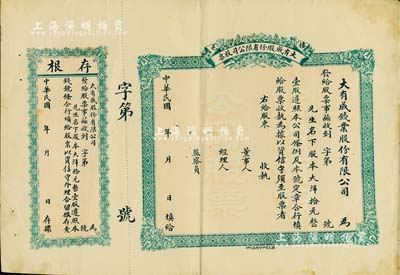 大有成股份有限公司股票
大有成錢業股份有限公司
發給股票事茲收到 字第 號
先生名下股本大洋拾元整
壹股遵照本公司條例及本號定章合行填
給股票收執為據以資信守須至股票者
右給股東 收執
董事人
經理人
監察員
中華民國 年 月 日 填給
字第 號
存根
大有成股份有限公司 為
發給股票事茲收到 字第 號
先生名下股本大洋拾元整壹股遵照本
中華民國 年 月 日 存據
上海陽明拍賣